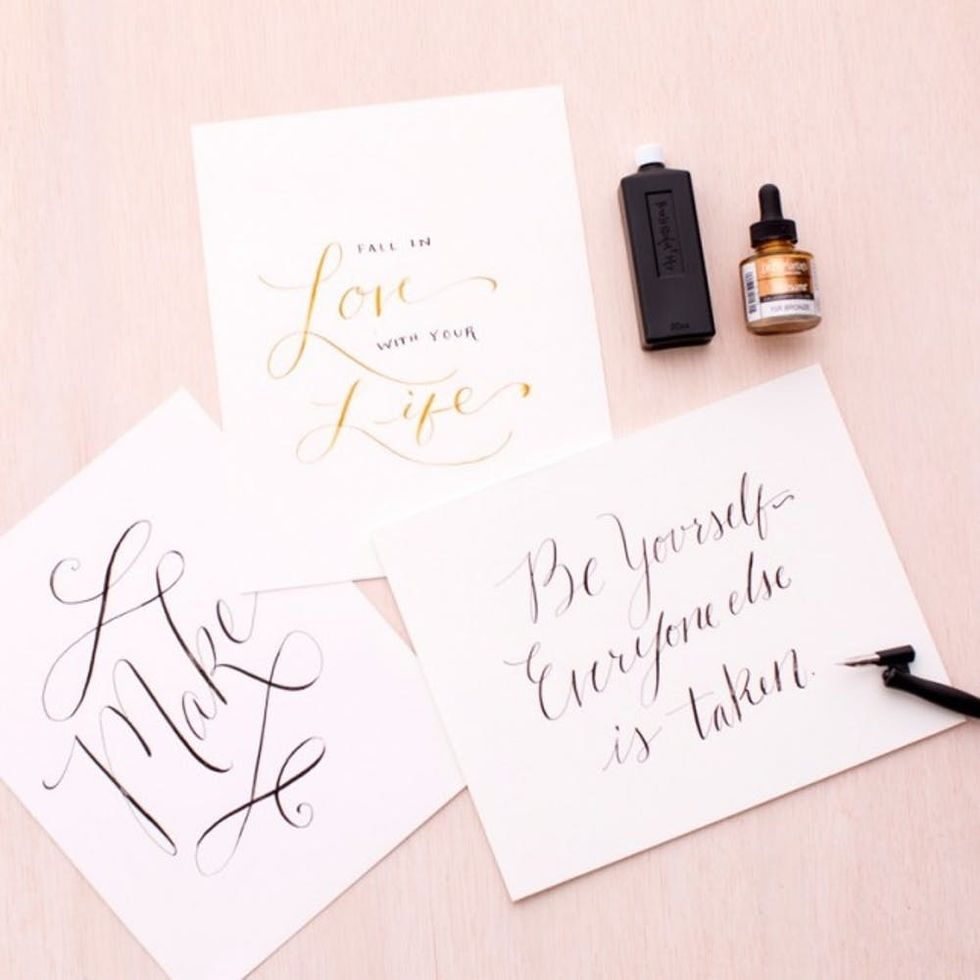 FALL IN
Love
WITH YOUR
Life
Make
Be Yourself
Everyone else
is taken.